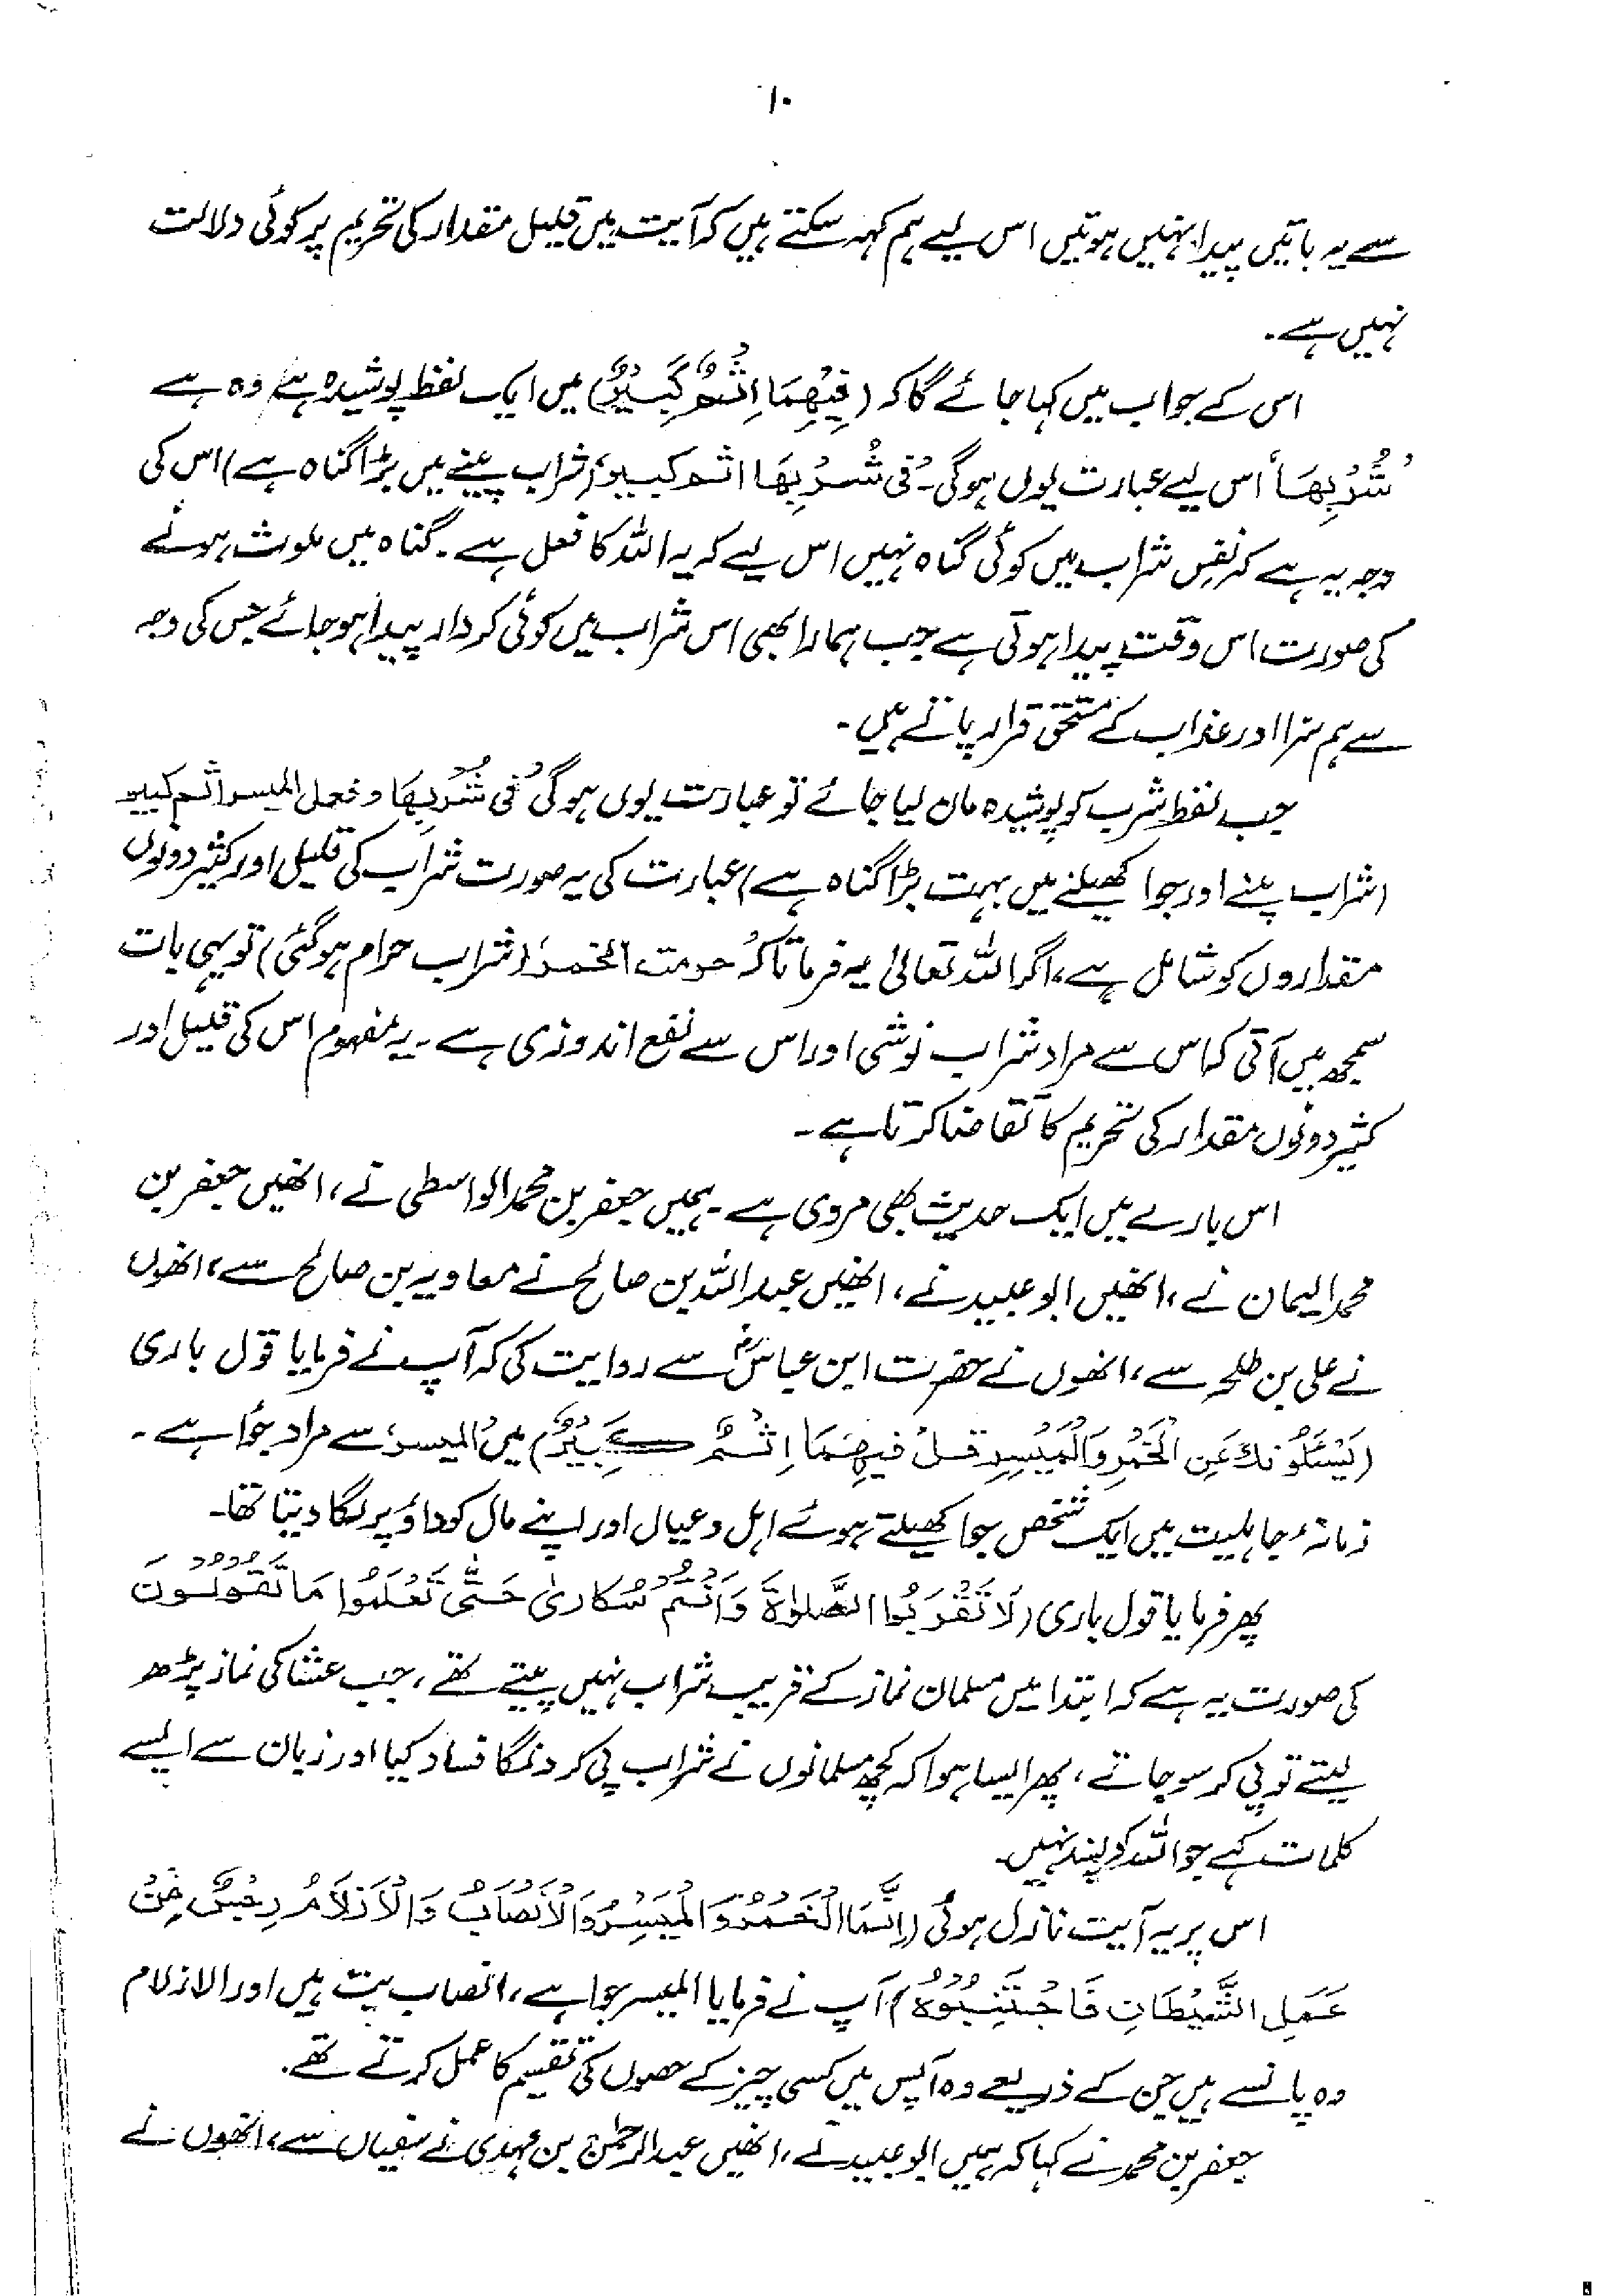 ۱۰
سے یہ باتیں پیدا نہیں ہوتیں اس لیے ہم کہہ سکتے ہیں کہ آیت میں قلیل مقدار کی تحریم پر کوئی دلالت
نہیں ہے۔
اس کے جواب میں کہا جائے گا کہ (فِيْهِمَا اِثْمٌ كَبِيْرٌ) میں ایک لفظ پوشیدہ ہے وہ ہے
'شُرْبِهَا' اس لیے عبارت یوں ہوگی۔ 'فی شُرْبِهَا اثم کبیر' (شراب پینے میں بڑا گناہ ہے) اس کی
وجہ یہ ہے کہ نفسِ شراب میں کوئی گناہ نہیں اس لیے کہ یہ اللہ کا فعل ہے۔ گناہ میں ملوث ہونے
کی صورت اس وقت پیدا ہوتی ہے جب ہمارا بھی اس شراب میں کوئی کردار پیدا ہو جائے جس کی وجہ
سے ہم سزا اور عذاب کے مستحق قرار پاتے ہیں۔
جب لفظ شرب کو پوشیدہ مان لیا جائے تو عبارت یوں ہوگی 'فی شُرْبِهَا و فعل المیسر اثم کبیر
(شراب پینے اور جوا کھیلنے میں بہت بڑا گناہ ہے) عبارت کی یہ صورت شراب کی قلیل اور کثیر دونوں
مقداروں کو شامل ہے، اگر اللہ تعالیٰ یہ فرماتا کہ 'حرمت الخمر' (شراب حرام ہوگئی) تو یہی بات
سمجھ میں آتی کہ اس سے مراد شراب نوشی اور اس سے نفع اندوزی ہے۔ یہ مفہوم اس کی قلیل اور
کثیر دونوں مقدار کی تحریم کا تقاضا کرتا ہے۔
اس بارے میں ایک حدیث بھی مروی ہے۔ ہمیں جعفر بن محمد الواسطی نے، انھیں جعفر بن
محمد الیمان نے، انھیں ابو عبید نے، انھیں عبداللہ بن صالح نے معاویہ بن صالح سے، انھوں
نے علی بن طلحہ سے، انھوں نے حضرت ابن عباسؓ سے روایت کی کہ آپ نے فرمایا قول باری
(يَسْئَلُوْنَكَ عَنِ الْخَمْرِ وَالْمَيْسِرِ قُلْ فِيْهِمَا اِثْمٌ كَبِيْرٌ) میں 'المیسر' سے مراد جوا ہے۔
زمانۂ جاہلیت میں ایک شخص جوا کھیلتے ہوئے اہل و عیال اور اپنے مال کو داؤ پر لگا دیتا تھا۔
پھر فرمایا قول باری (لَا تَقْرَبُوا الصَّلٰوةَ وَاَنْتُمْ سُكَارىٰ حَتّٰى تَعْلَمُوا مَا تَقُوْلُوْنَ
کی صورت یہ ہے کہ ابتدا میں مسلمان نماز کے قریب شراب نہیں پیتے تھے، جب عشا کی نماز پڑھ
لیتے تو پی کر سو جاتے، پھر ایسا ہوا کہ کچھ مسلمانوں نے شراب پی کر دنگا فساد کیا اور زبان سے ایسے
کلمات کہے جو اللہ کو پسند نہیں۔
اس پر یہ آیت نازل ہوئی (اِنَّمَا الْخَمْرُ وَالْمَيْسِرُ وَالْاَنْصَابُ وَالْاَزْلَامُ رِجْسٌ مِّنْ
عَمَلِ الشَّيْطَانِ فَاجْتَنِبُوْهُ) آپ نے فرمایا المیسر جوا ہے، انصاب بت ہیں اور الازلام
وہ پانسے ہیں جن کے ذریعے وہ آپس میں کسی چیز کے حصوں کی تقسیم کا عمل کرتے تھے۔
جعفر بن محمد نے کہا کہ ہمیں ابو عبید نے، انھیں عبدالرحمٰن بن مہدی نے سفیان سے، انھوں نے